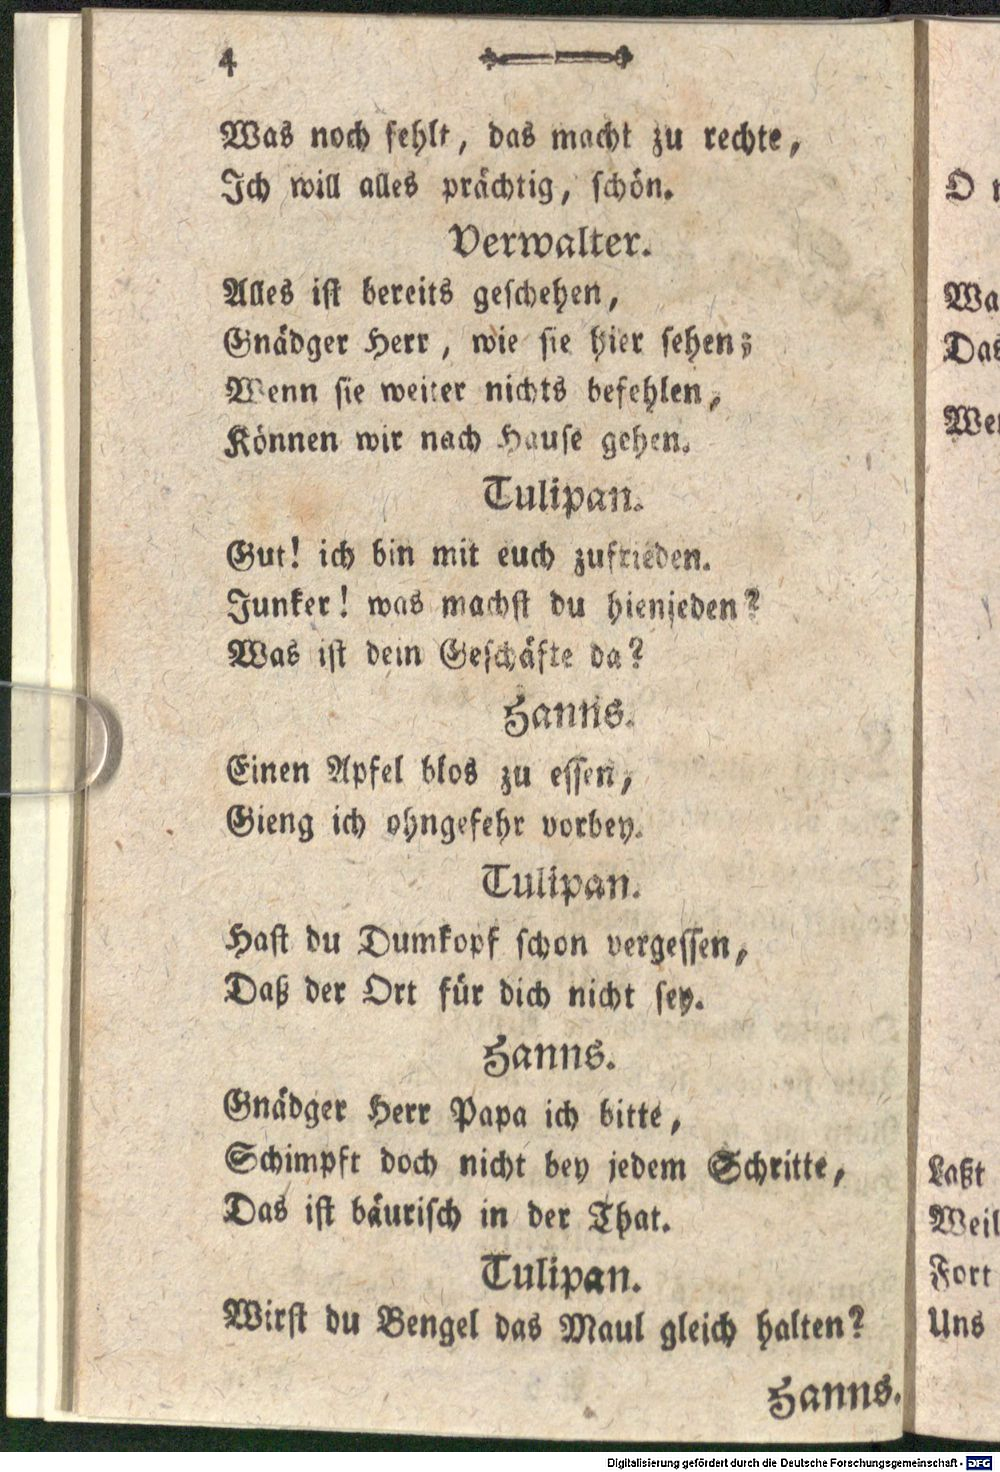 4
Was noch fehlt, das macht zu rechte,
Ich will alles prächtig, schön.
Verwalter.
Alles ist bereits geschehen,
Gnädger Herr, wie sie hier sehen;
Wenn sie weiter nichts befehlen,
Können wir nach Hause gehen.
Tulipan.
Gut! ich bin mit euch zufrieden.
Junker! was machst du hienieden?
Was ist dein Geschäfte da?
Hanns.
Einen Apfel blos zu essen,
Gieng ich ohngefehr vorbey.
Tulipan.
Hast du Dumkopf schon vergessen,
Daß der Ort für dich nicht sey.
Hanns.
Gnädger Herr Papa ich bitte,
Schimpft doch nicht bey jedem Schritte,
Das ist bäurisch in der That.
Tulipan.
Wirst du Bengel das Maul gleich halten?
Hanns.
O
Wa
Das
Wen
Laßt
Weil
Fort
Uns
Digitalisierung gefördert durch die Deutsche Forschungsgemeinschaft - DFG